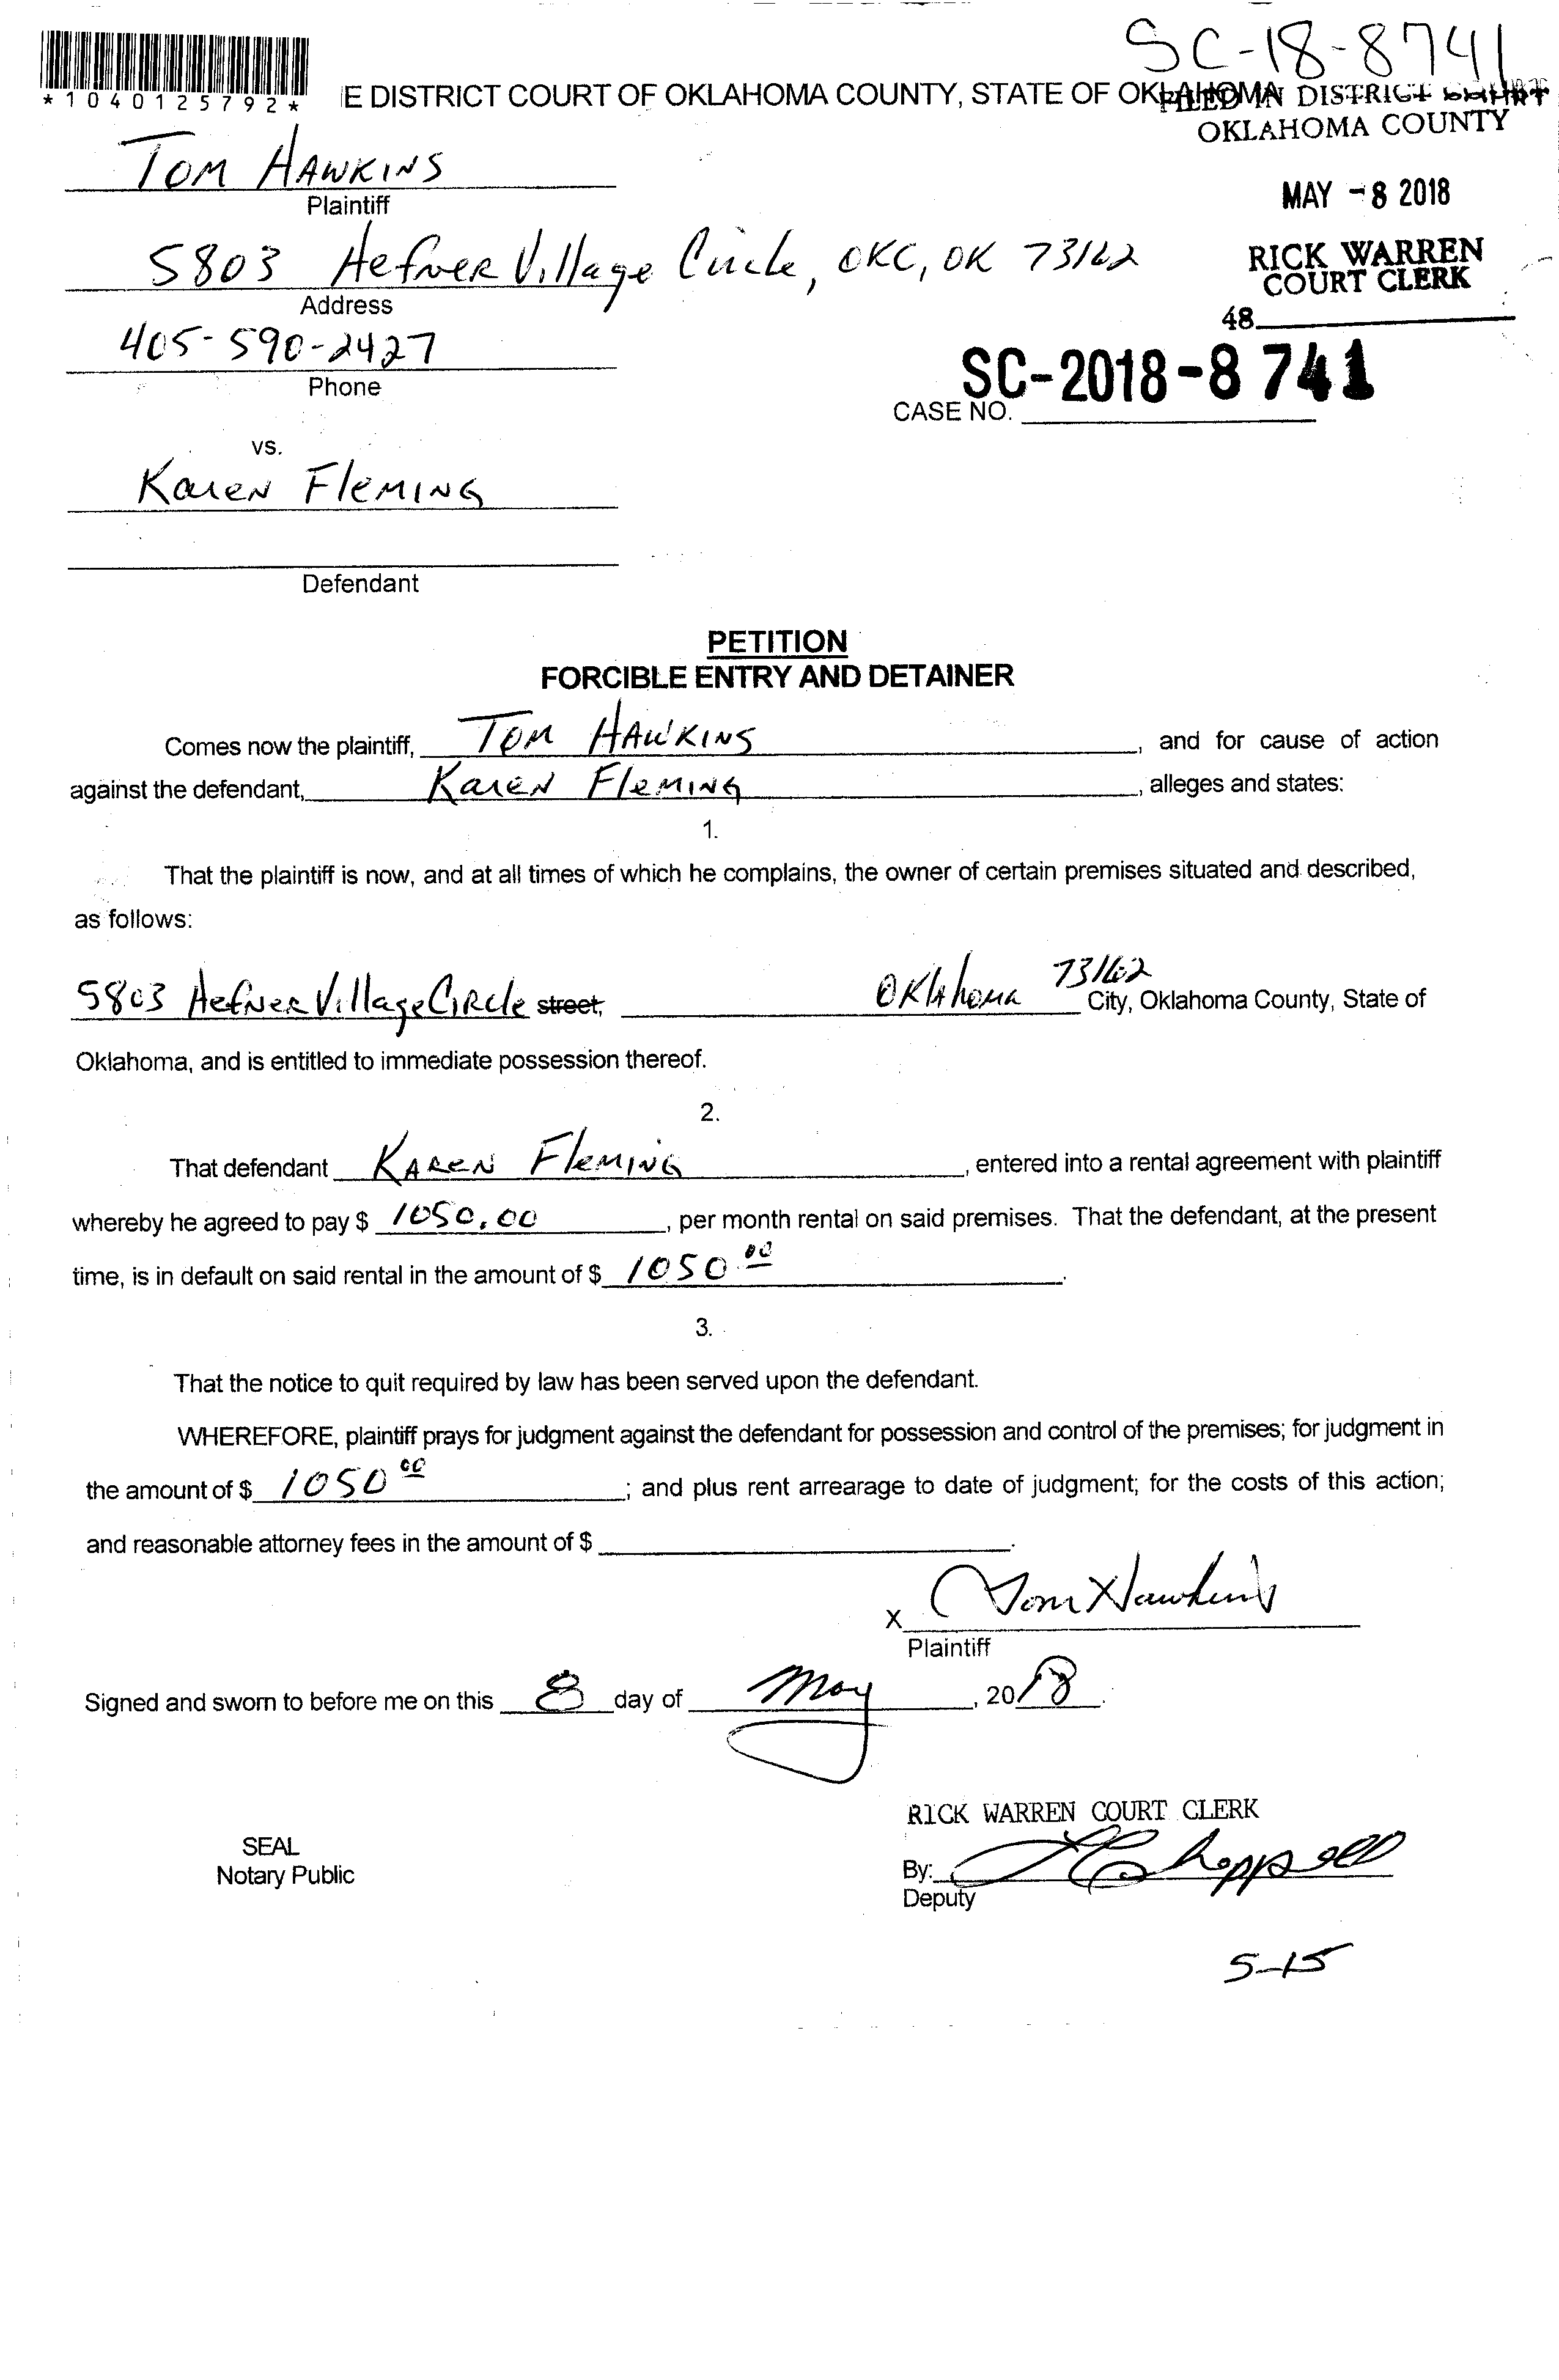 SC-18-8741
*1040125792*
E DISTRICT COURT OF OKLAHOMA COUNTY, STATE OF OKLAHOMA
FILED IN DISTRICT COURT
OKLAHOMA COUNTY
TOM HAWKINS
Plaintiff
MAY -8 2018
5803 Hefner Village Circle, OKC, OK 73162
Address
RICK WARREN
COURT CLERK
48
405-590-2427
Phone
SC-2018-8 741
CASE NO.
vs.
Karen Fleming
Defendant
PETITION
FORCIBLE ENTRY AND DETAINER
Comes now the plaintiff, TOM HAWKINS, and for cause of action
against the defendant, Karen Fleming, alleges and states:
1.
That the plaintiff is now, and at all times of which he complains, the owner of certain premises situated and described,
as follows:
5803 Hefner Village Circle street, Oklahoma 73162 City, Oklahoma County, State of
Oklahoma, and is entitled to immediate possession thereof.
2.
That defendant Karen Fleming, entered into a rental agreement with plaintiff
whereby he agreed to pay $ 1050.00, per month rental on said premises. That the defendant, at the present
time, is in default on said rental in the amount of $ 1050 00.
3.
That the notice to quit required by law has been served upon the defendant.
WHEREFORE, plaintiff prays for judgment against the defendant for possession and control of the premises; for judgment in
the amount of $ 1050 00; and plus rent arrearage to date of judgment; for the costs of this action;
and reasonable attorney fees in the amount of $.
X Tom Hawkins
Plaintiff
Signed and sworn to before me on this 8 day of May, 2018.
RICK WARREN COURT CLERK
SEAL
Notary Public
By: Choppell
Deputy
5-15